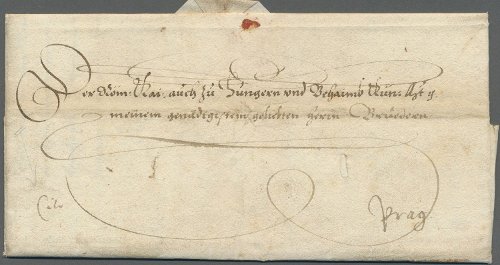 Der Röm: Kai: auch zu Hungern und Behaimb Kün: Mt: 
meinem genedigisten geliebten herrn Bruedern
Cito
Prag